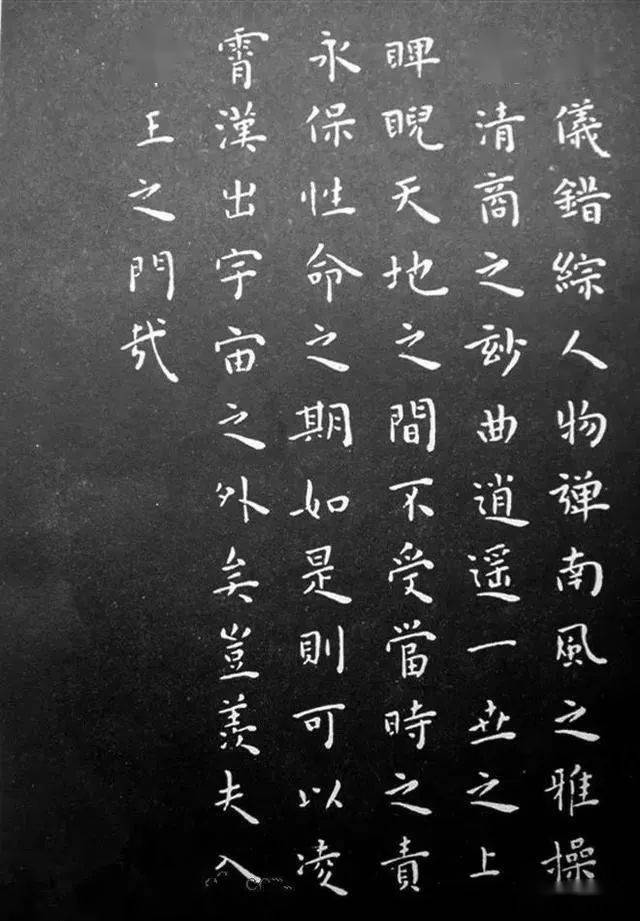 儀錯綜人物彈南風之雅操
清商之玅曲逍遥一世之上
睥睨天地之間不受當時之責
永保性命之期如是則可以凌
霄漢出宇宙之外矣豈羨夫入
王之門哉